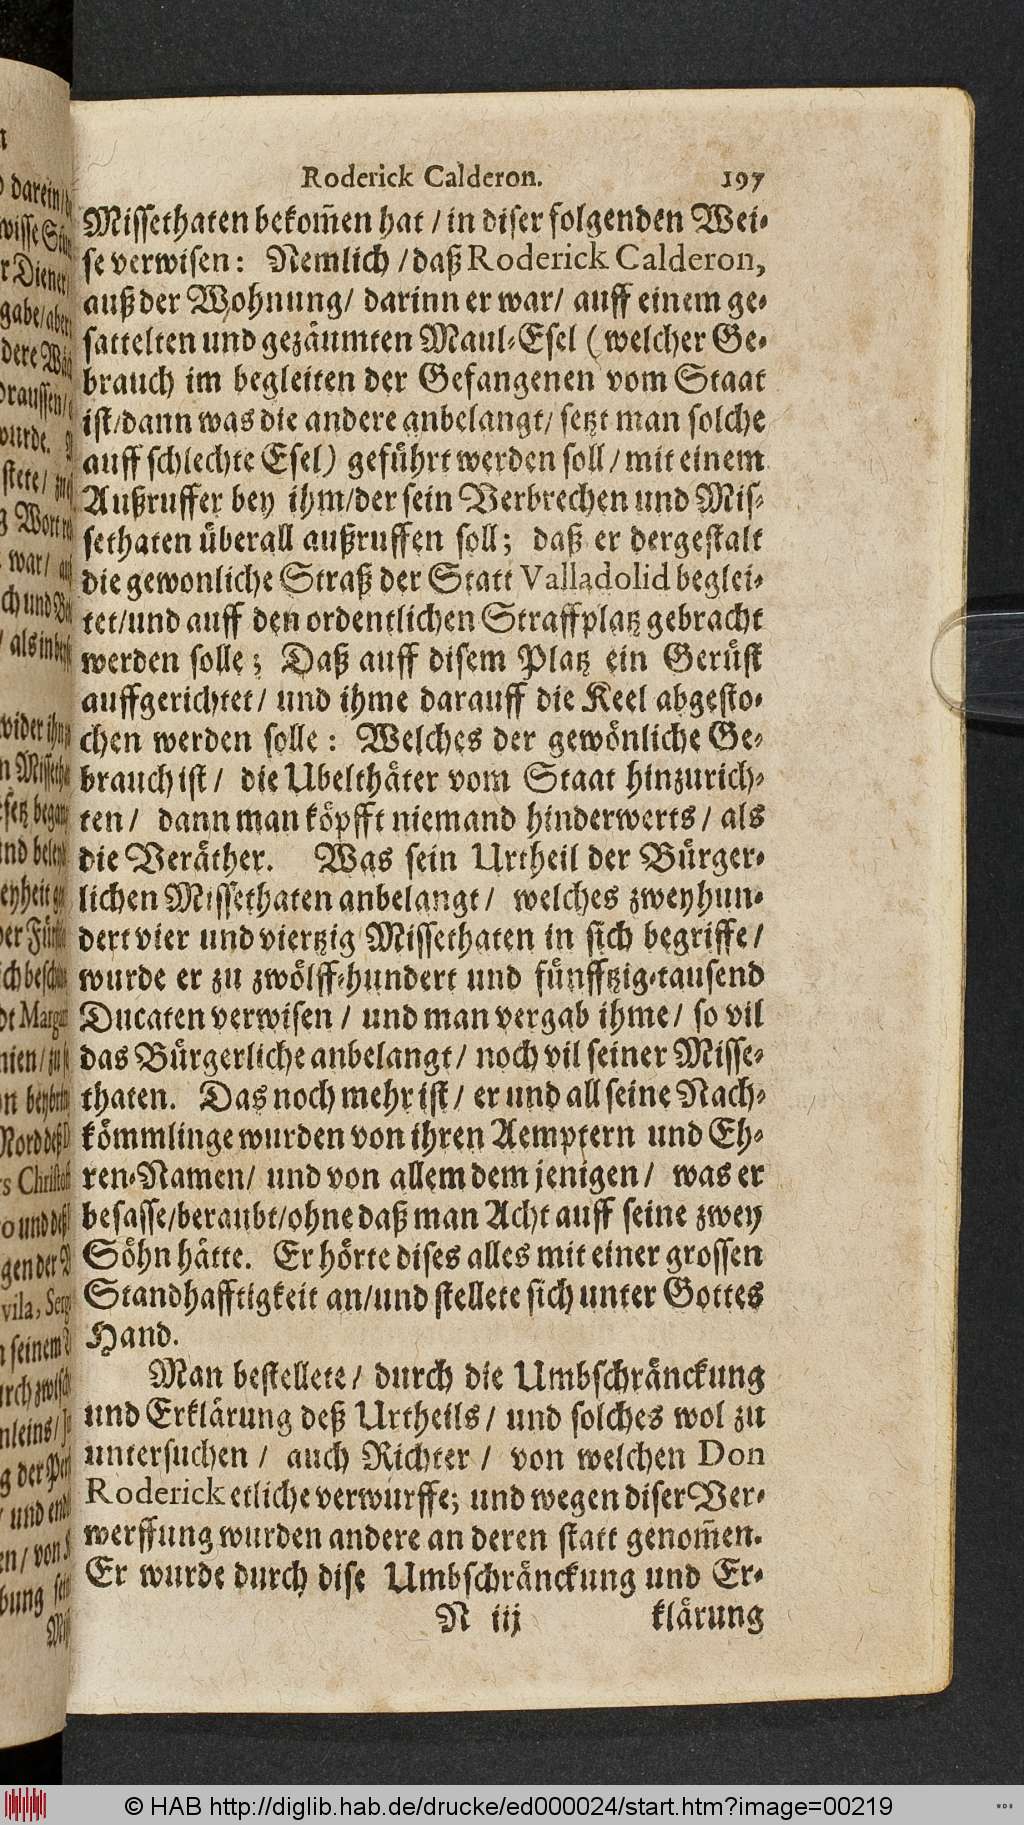 Roderick Calderon. 197
Missethaten bekom̃en hat / in diser folgenden Wei-
se verwisen: Nemlich / daß Roderick Calderon,
auß der Wohnung / darinn er war / auff einem ge-
sattelten und gezäumten Maul-Esel (welcher Ge-
brauch im begleiten der Gefangenen vom Staat
ist / dann was die andere anbelangt / setzt man solche
auff schlechte Esel) geführt werden soll / mit einem
Außruffer bey ihm / der sein Verbrechen und Mis-
sethaten überall außruffen soll; daß er dergestalt
die gewonliche Straß der Statt Valladolid beglei-
tet / und auff den ordentlichen Straffplatz gebracht
werden solle; Daß auff disem Platz ein Gerüst
auffgerichtet / und ihme darauff die Keel abgesto-
chen werden solle: Welches der gewönliche Ge-
brauch ist / die Ubelthäter vom Staat hinzurich-
ten / dann man köpfft niemand hinderwerts / als
die Veräther. Was sein Urtheil der Bürger-
lichen Missethaten anbelangt / welches zweyhun-
dert vier und viertzig Missethaten in sich begriffe /
wurde er zu zwölff-hundert und fünfftzig-tausend
Ducaten verwisen / und man vergab ihme / so vil
das Bürgerliche anbelangt / noch vil seiner Misse-
thaten. Das noch mehr ist / er und all seine Nach-
kömmlinge wurden von ihren Aemptern und Eh-
ren-Namen / und von allem dem jenigen / was er
besasse / beraubt / ohne daß man Acht auff seine zwey
Söhn hätte. Er hörte dises alles mit einer grossen
Standhafftigkeit an / und stellete sich unter Gottes
Hand.
Man bestellete / durch die Umbschränckung
und Erklärung deß Urtheils / und solches wol zu
untersuchen / auch Richter / von welchen Don
Roderick etliche verwurffe; und wegen diser Ver-
werffung wurden andere an deren statt genom̃en.
Er wurde durch dise Umbschränckung und Er-
N iij klärung
© HAB http://diglib.hab.de/drucke/ed000024/start.htm?image=00219